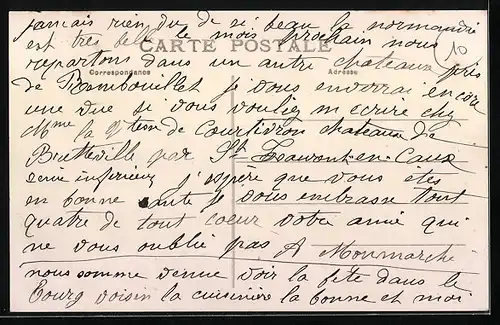 jamais rien du de si beau la normandie
est tres belle le mois prochain nous
CARTE POSTALE
10
repartons dans un autre chateaux près
Correspondance Adresse
de Rambouillet je vous enverrai encore
une vue si vous vouliez m ecrire chez
Mme la Ctesse de Courtivron chateaux de
Butteville par St Laurent-en-Caux
Seine inferieure j'espère que vous etes
en bonne santé je vous embrasse tout
quatre de tout coeur votre amie qui
ne vous oublie pas A Monmarché
nous somme venue voir la fête dans le
bourg voisin la cuisinière la bonne et moi